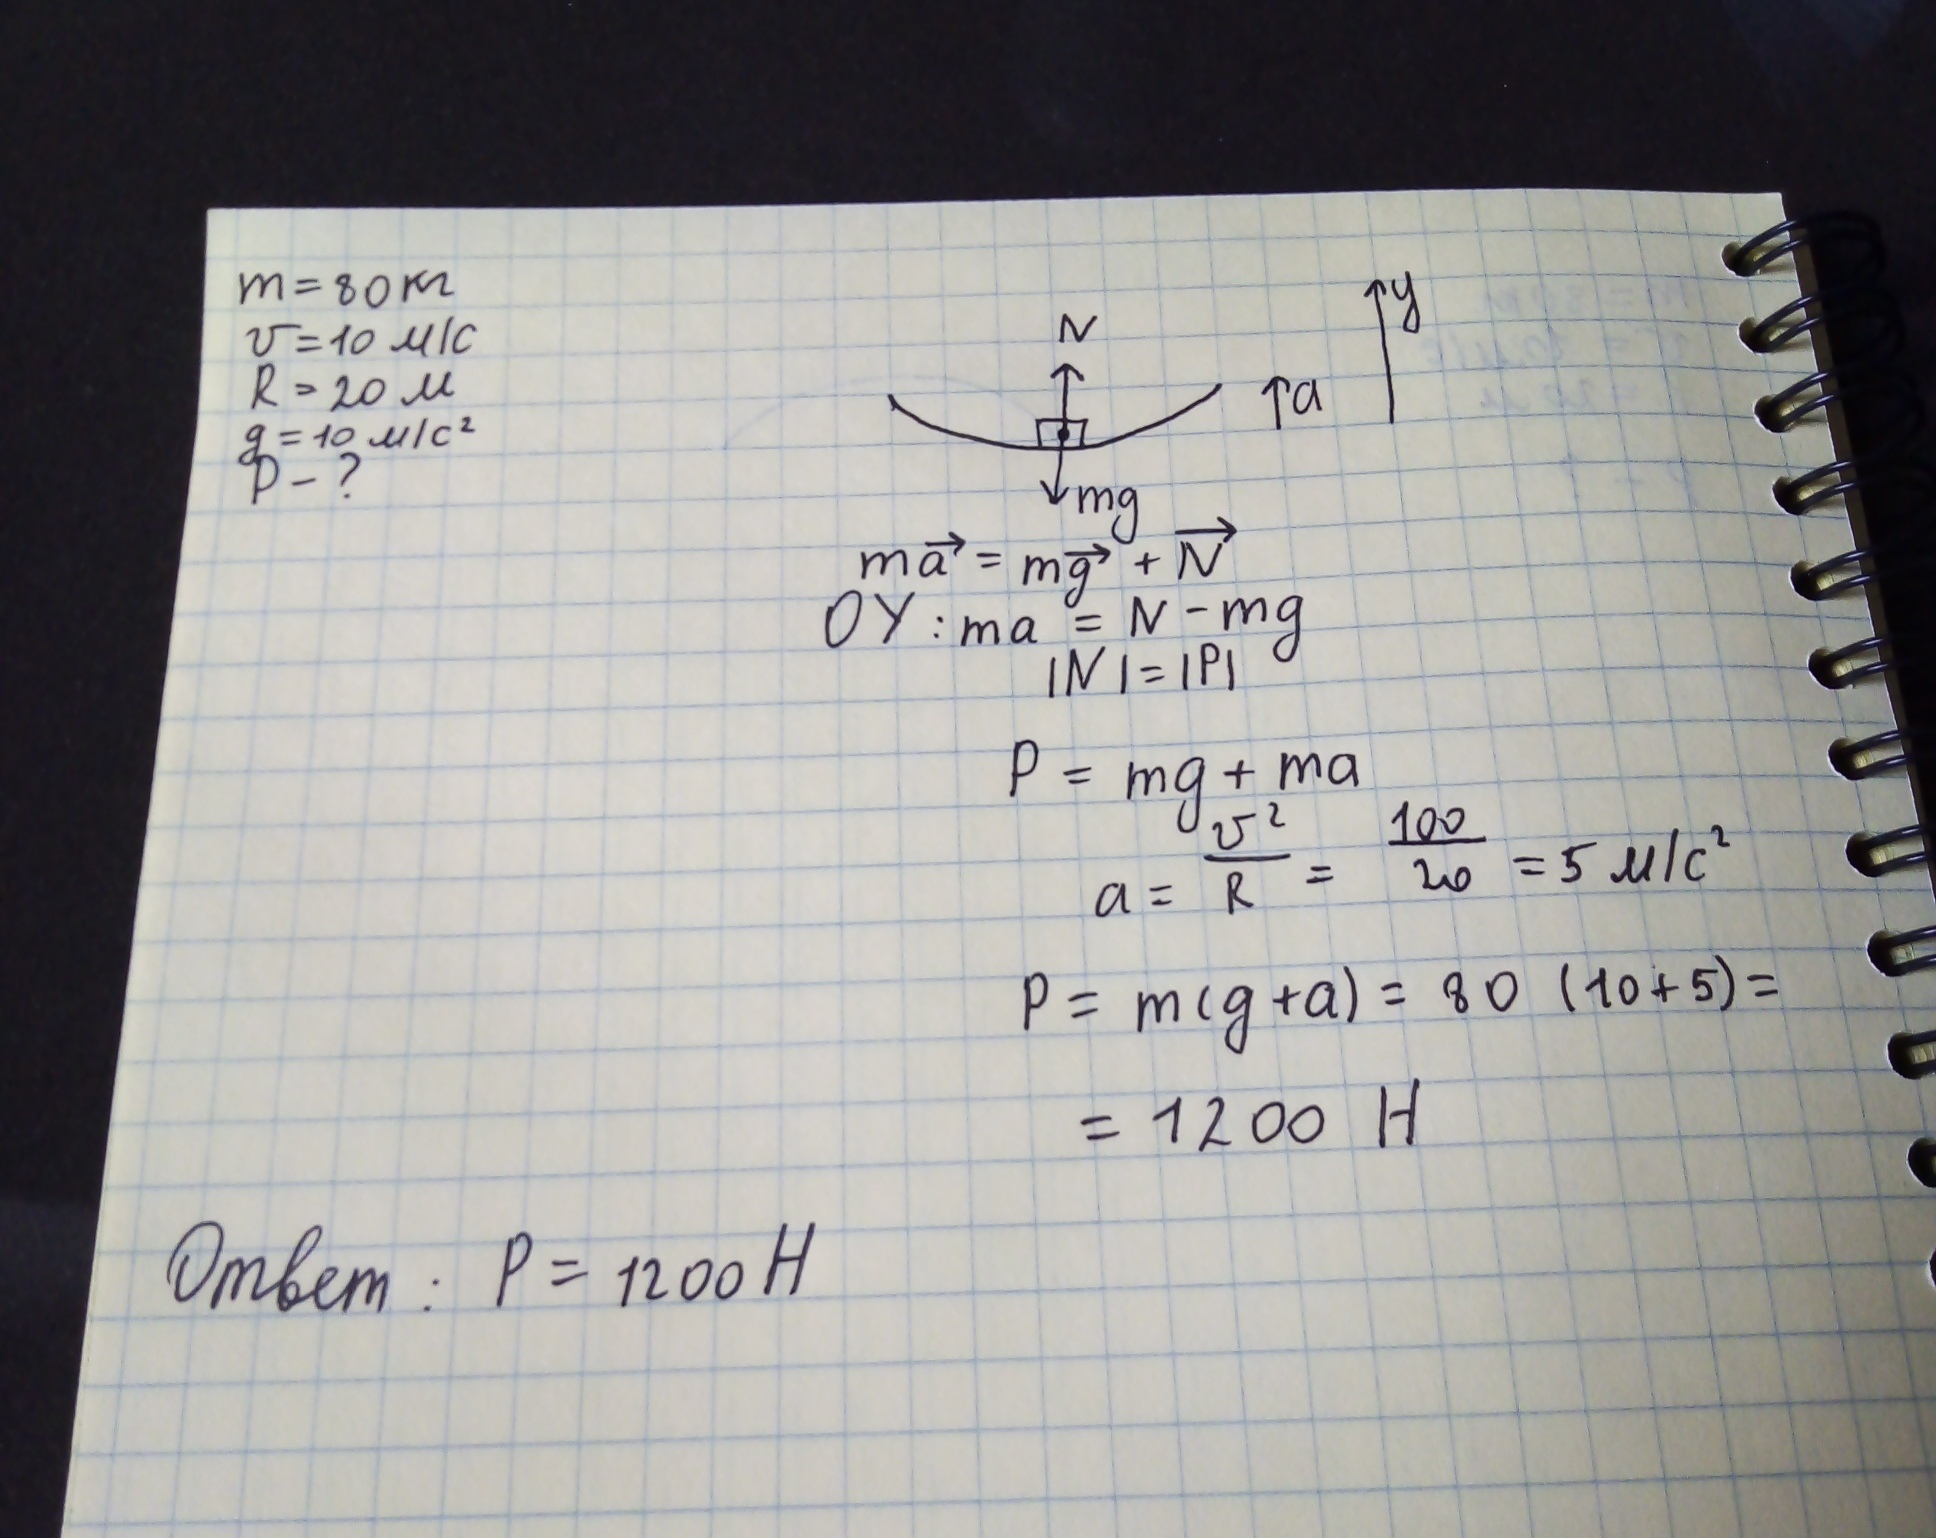 m = 80 кг
v = 10 м/с
R = 20 м
g = 10 м/с²
P - ?
N
a
y
mg
ma⃗ = mg⃗ + N⃗
OY : ma = N - mg
|N| = |P|
P = mg + ma
a = v²/R = 100/20 = 5 м/с²
P = m(g + a) = 80 (10 + 5) =
= 1200 Н
Ответ : P = 1200 Н